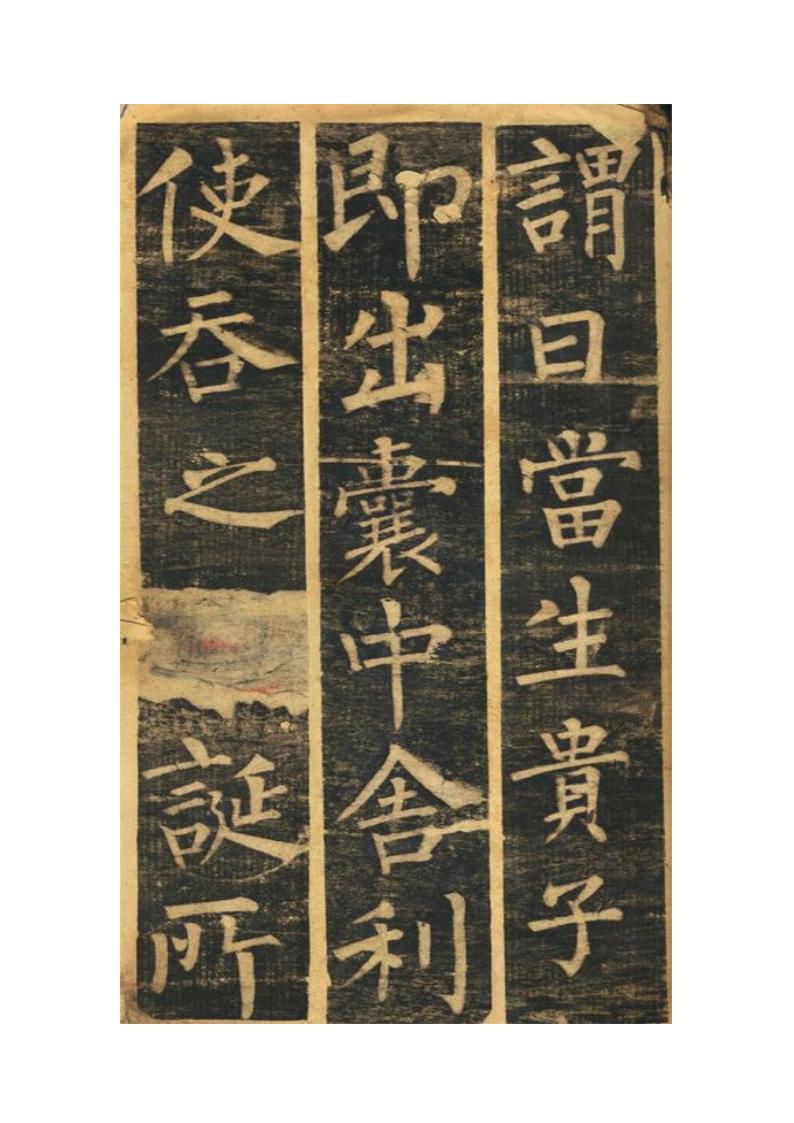 謂曰當生貴子
即出囊中舍利
使吞之誕所